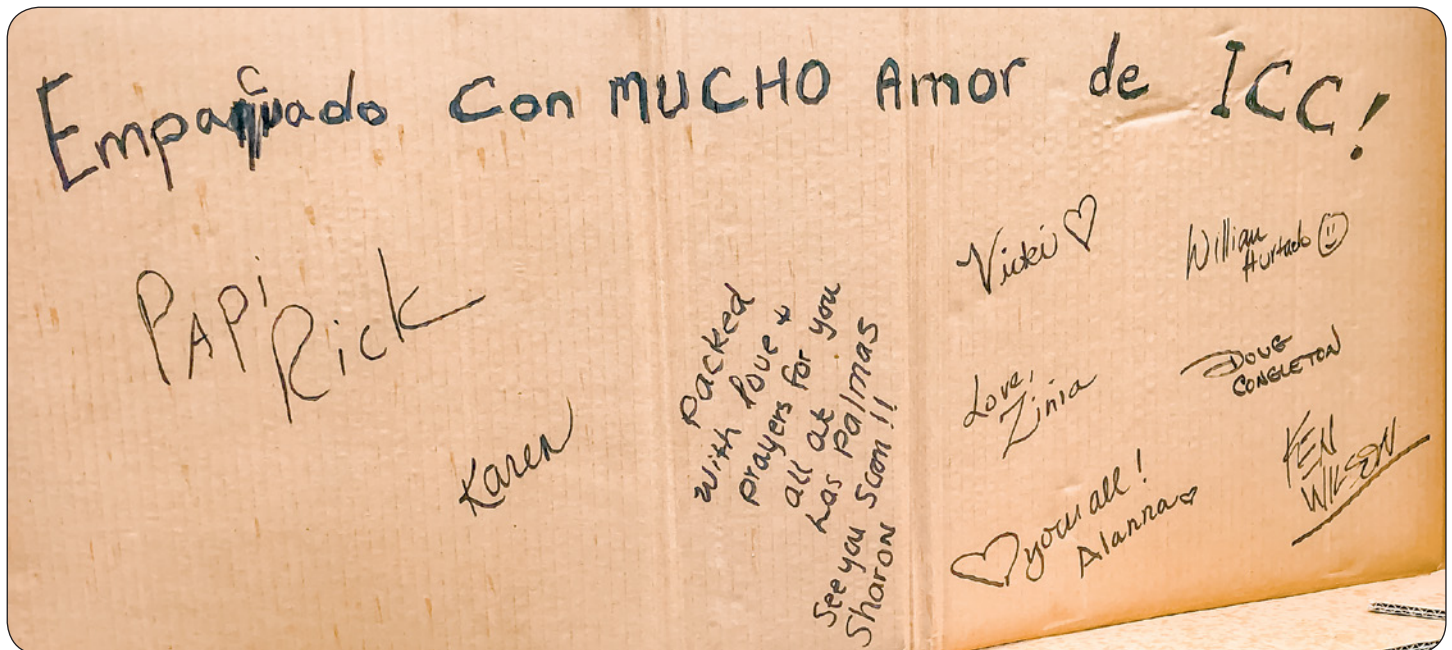 Empacado Con MUCHO Amor de ICC!
PAPi
Rick
Karen
Packed
with love +
prayers for you
all at
Las Palmas
See you soon!!
Sharon
Vicki ♡
William
Hurtado ☺
Love,
Zinia
DOUG
CONGLETON
♡ you all!
Alanna ♡
KEN
WILSON